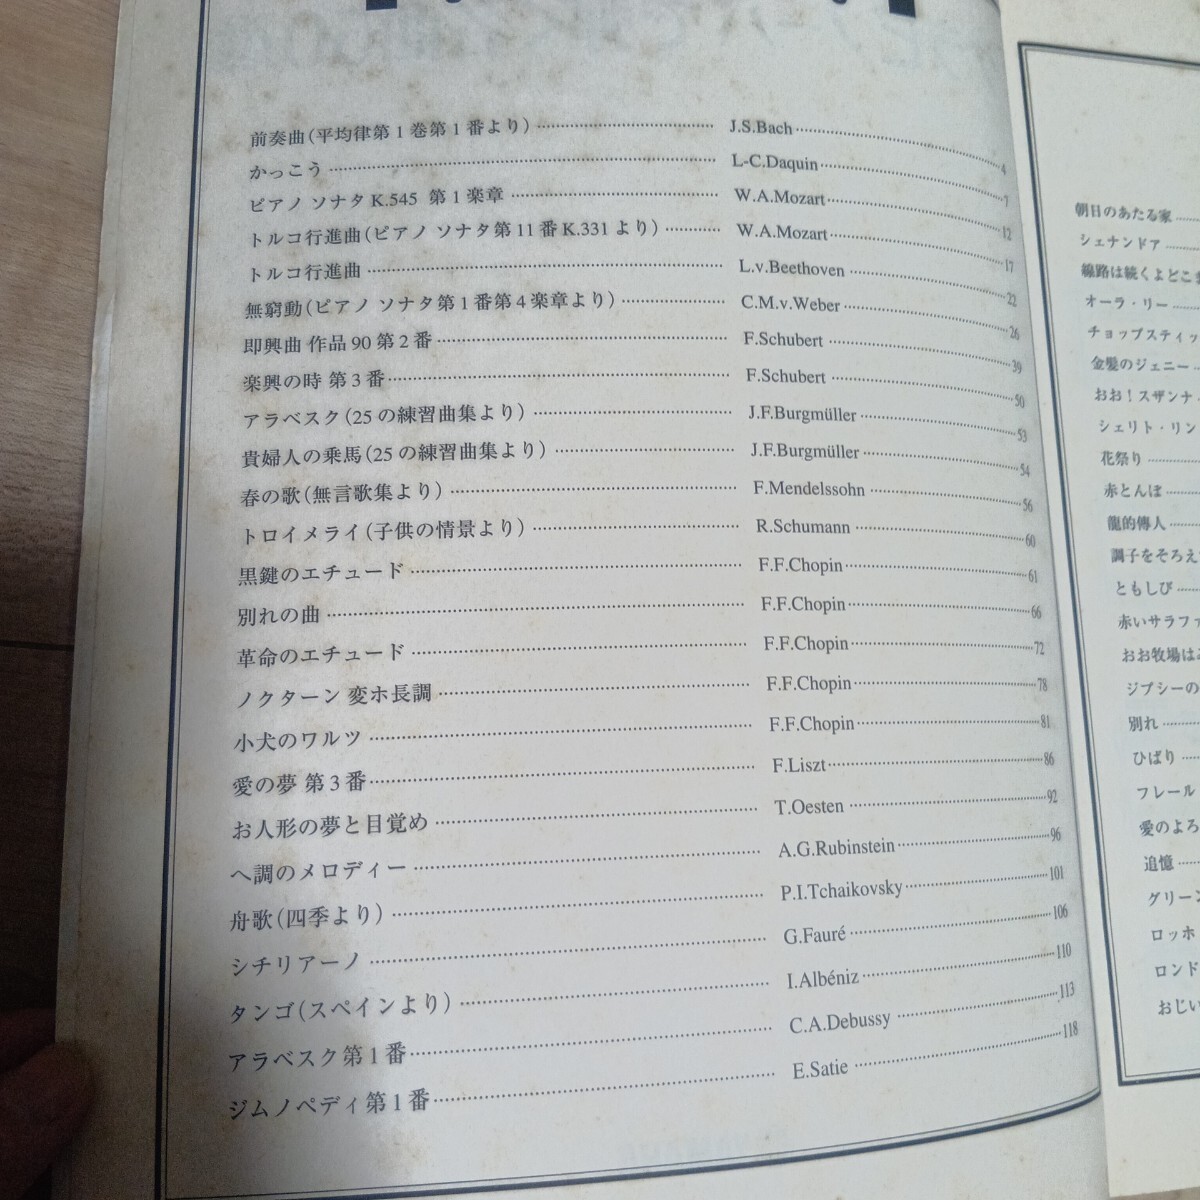 前奏曲(平均律第1巻第1番より) J.S.Bach 4
かっこう L-C.Daquin 7
ピアノ ソナタ K.545 第1楽章 W.A.Mozart 12
トルコ行進曲(ピアノ ソナタ第11番K.331より) W.A.Mozart 17
トルコ行進曲 L.v.Beethoven 22
無窮動(ピアノ ソナタ第1番第4楽章より) C.M.v.Weber 26
即興曲 作品90 第2番 F.Schubert 39
楽興の時 第3番 F.Schubert 50
アラベスク(25の練習曲集より) J.F.Burgmüller 53
貴婦人の乗馬(25の練習曲集より) J.F.Burgmüller 54
春の歌(無言歌集より) F.Mendelssohn 56
トロイメライ(子供の情景より) R.Schumann 60
黒鍵のエチュード F.F.Chopin 61
別れの曲 F.F.Chopin 66
革命のエチュード F.F.Chopin 72
ノクターン 変ホ長調 F.F.Chopin 78
小犬のワルツ F.F.Chopin 81
愛の夢 第3番 F.Liszt 86
お人形の夢と目覚め T.Oesten 92
ヘ調のメロディー A.G.Rubinstein 96
舟歌(四季より) P.I.Tchaikovsky 101
シチリアーノ G.Fauré 106
タンゴ(スペインより) I.Albéniz 110
アラベスク第1番 C.A.Debussy 113
ジムノペディ第1番 E.Satie 118
朝日のあたる家
シェナンドア
線路は続くよどこま
オーラ・リー
チョップスティッ
金髪のジェニー
おお!スザンナ
シェリト・リン
花祭り
赤とんぼ
龍的傳人
調子をそろえ
ともしび
赤いサラファ
おお牧場は
ジプシーの
別れ
ひばり
フレール
愛のよろ
追憶
グリーン
ロッホ
ロンド
おじい